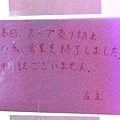 本日、スープ売り切れ
の為、営業を終了しました。
申し訳ございません。
店主